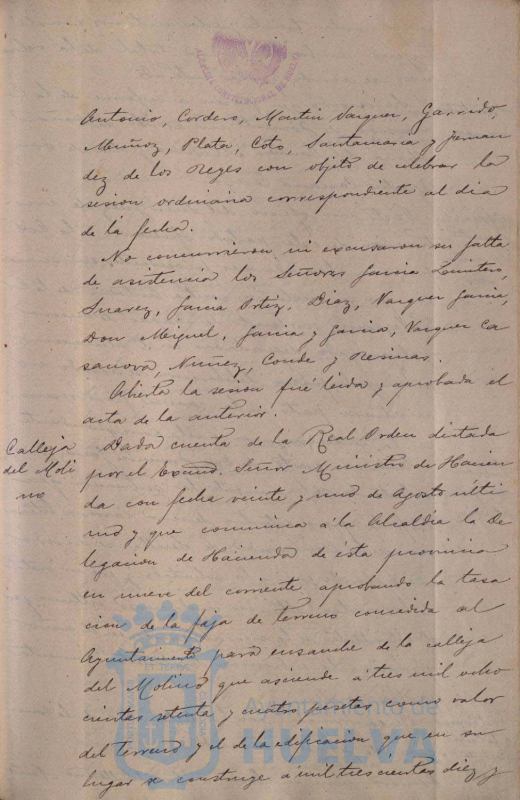 ALCALDIA CONSTITUCIONAL DE HUELVA
Antonio, Cordero, Martin Vazquez, Garrido,
Muñoz, Plata, Coto, Santamaria y Fernan
dez de los Reyes con objeto de celebrar la
sesion ordinaria correspondiente al dia
de la fecha.
No concurrieron ni excusaron su falta
de asistencia los Señores Garcia Quintero,
Suarez, Garcia Ortiz, Diaz, Vazquez Garcia,
Don Miguel, Garcia y Garcia, Vazquez Ca
sanova, Nuñez, Conde y Resinas.
Abierta la sesion fué leida y aprobada el
acta de la anterior.
Calleja
del Moli
no
Dada cuenta de la Real Orden dictada
por el Excmo. Señor Ministro de Hacien
da con fecha veinte y uno de Agosto últi
mo y que comunica á la Alcaldía la De
legacion de Hacienda de ésta provincia
en nueve del corriente aprobando la tasa
cion de la faja de terreno concedida al
Ayuntamiento para ensanche de la calleja
del Molino que asciende á tres mil ocho
cientas setenta y cuatro pesetas como valor
del terreno y el de la edificacion que en su
lugar se construye á mil trescientas diez y
Ayuntamiento de
HUELVA